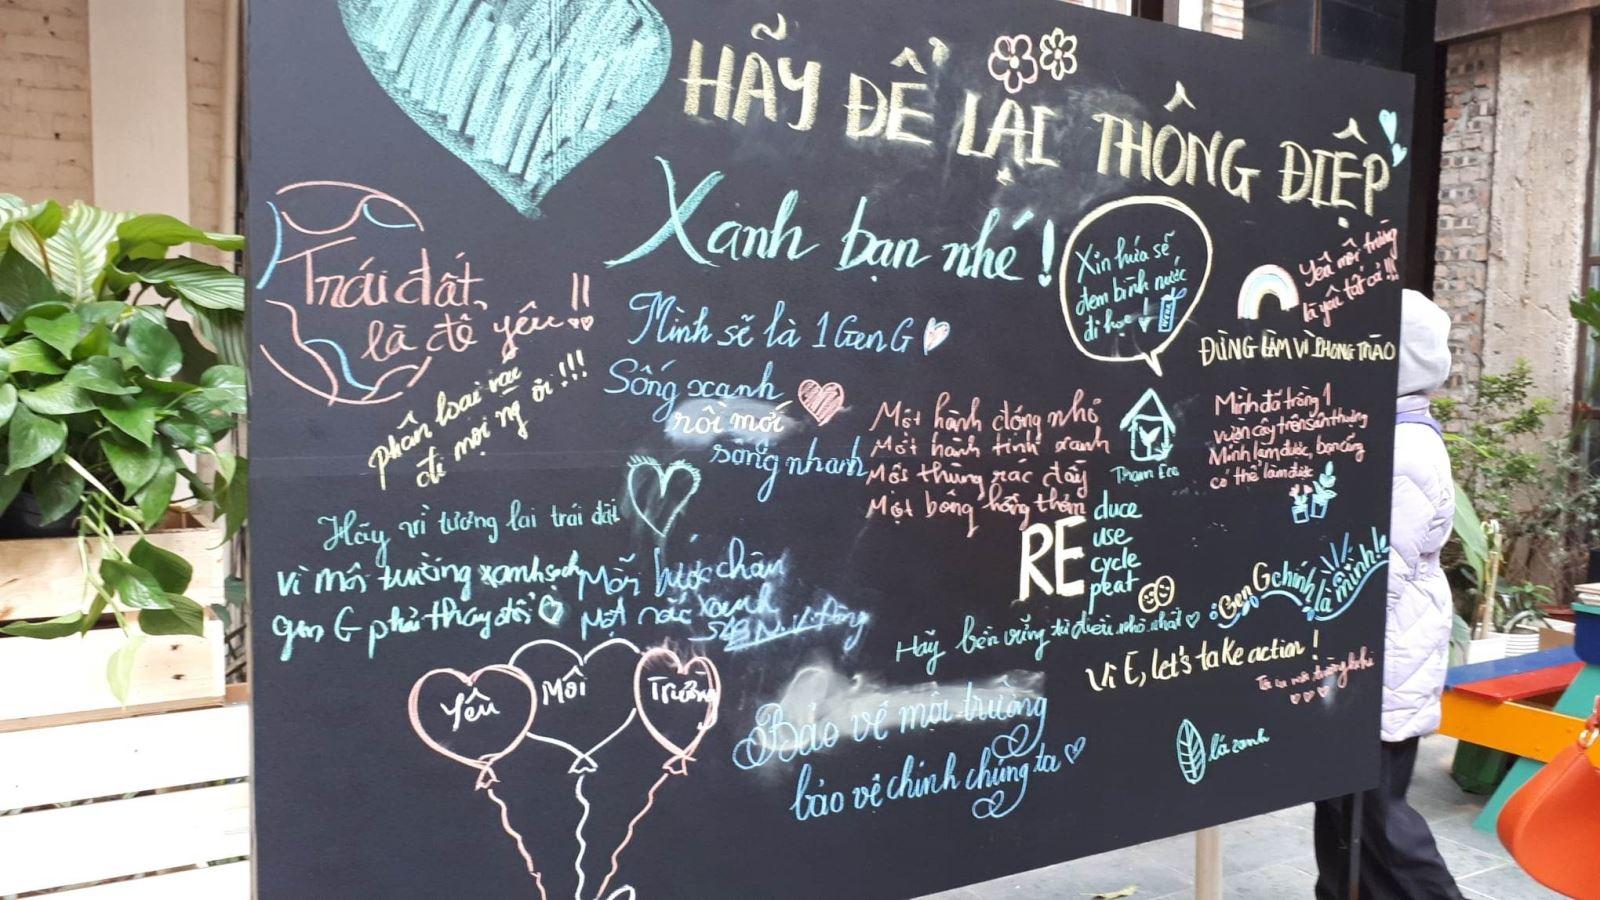 HÃY ĐỂ LẠI THÔNG ĐIỆP
Xanh bạn nhé!
Trái đất
là để yêu!!
phân loại rác
đi mọi ng ơi!!!
Mình sẽ là 1 Gen G
Sống xanh
rồi mới
sống nhanh
Xin hứa sẽ
đem bình nước
đi học!
Yêu môi trường
là yêu tất cả!!!
ĐỪNG LÀM VÌ PHONG TRÀO
Một hành động nhỏ
Một hành tinh xanh
Một thùng rác đầy
Một bông hồng thắm
Trạm Eco
Mình đã trồng 1
vườn cây trên sân thượng
Mình làm được, bạn cũng
có thể làm được
Hãy vì tương lai trái đất
Vì môi trường xanh sạch
gen G phải thay đổi
Mỗi bước chân
xanh
RE
duce
use
cycle
peat
Gen G chính là mình!
Hãy bền vững từ điều nhỏ nhất
Vì E, let's take action!
Yêu
Môi
Trường
Bảo vệ môi trường
bảo vệ chính chúng ta
lá xanh